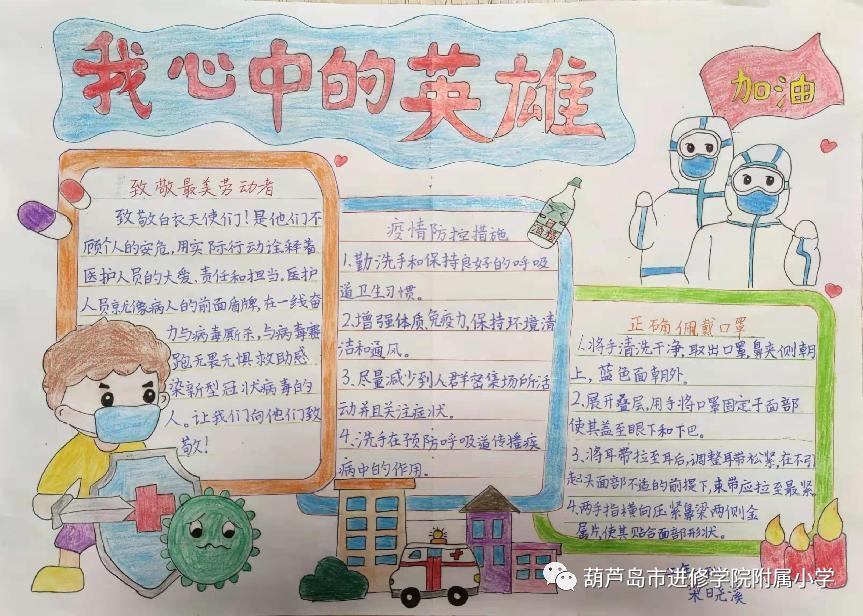 我心中的英雄
加油
致敬最美劳动者
致敬白衣天使们！是他们不
顾个人的安危，用实际行动诠释着
医护人员的大爱、责任和担当。医护
人员就像病人的前面盾牌，在一线奋
力与病毒厮杀，与病毒赛
跑无畏无惧救助感
染新型冠状病毒的
人。让我们向他们致
敬！
酒精
疫情防控措施
1.勤洗手和保持良好的呼吸
道卫生习惯。
2.增强体质免疫力，保持环境清
洁和通风。
3.尽量减少到人群密集场所活
动并且关注症状。
4.洗手在预防呼吸道传播疾
病中的作用。
正确佩戴口罩
1.将手清洗干净，取出口罩，鼻夹侧朝
上，蓝色面朝外。
2.展开叠层，用手将口罩固定于面部
使其盖至眼下和下巴。
3.将耳带拉至耳后，调整耳带松紧，在不引
起头面部不适的前提下，束带应拉至最紧
4.两手指横向压紧鼻梁两侧金
属片，使其贴合面部形状。
葫芦岛市进修学院附属小学